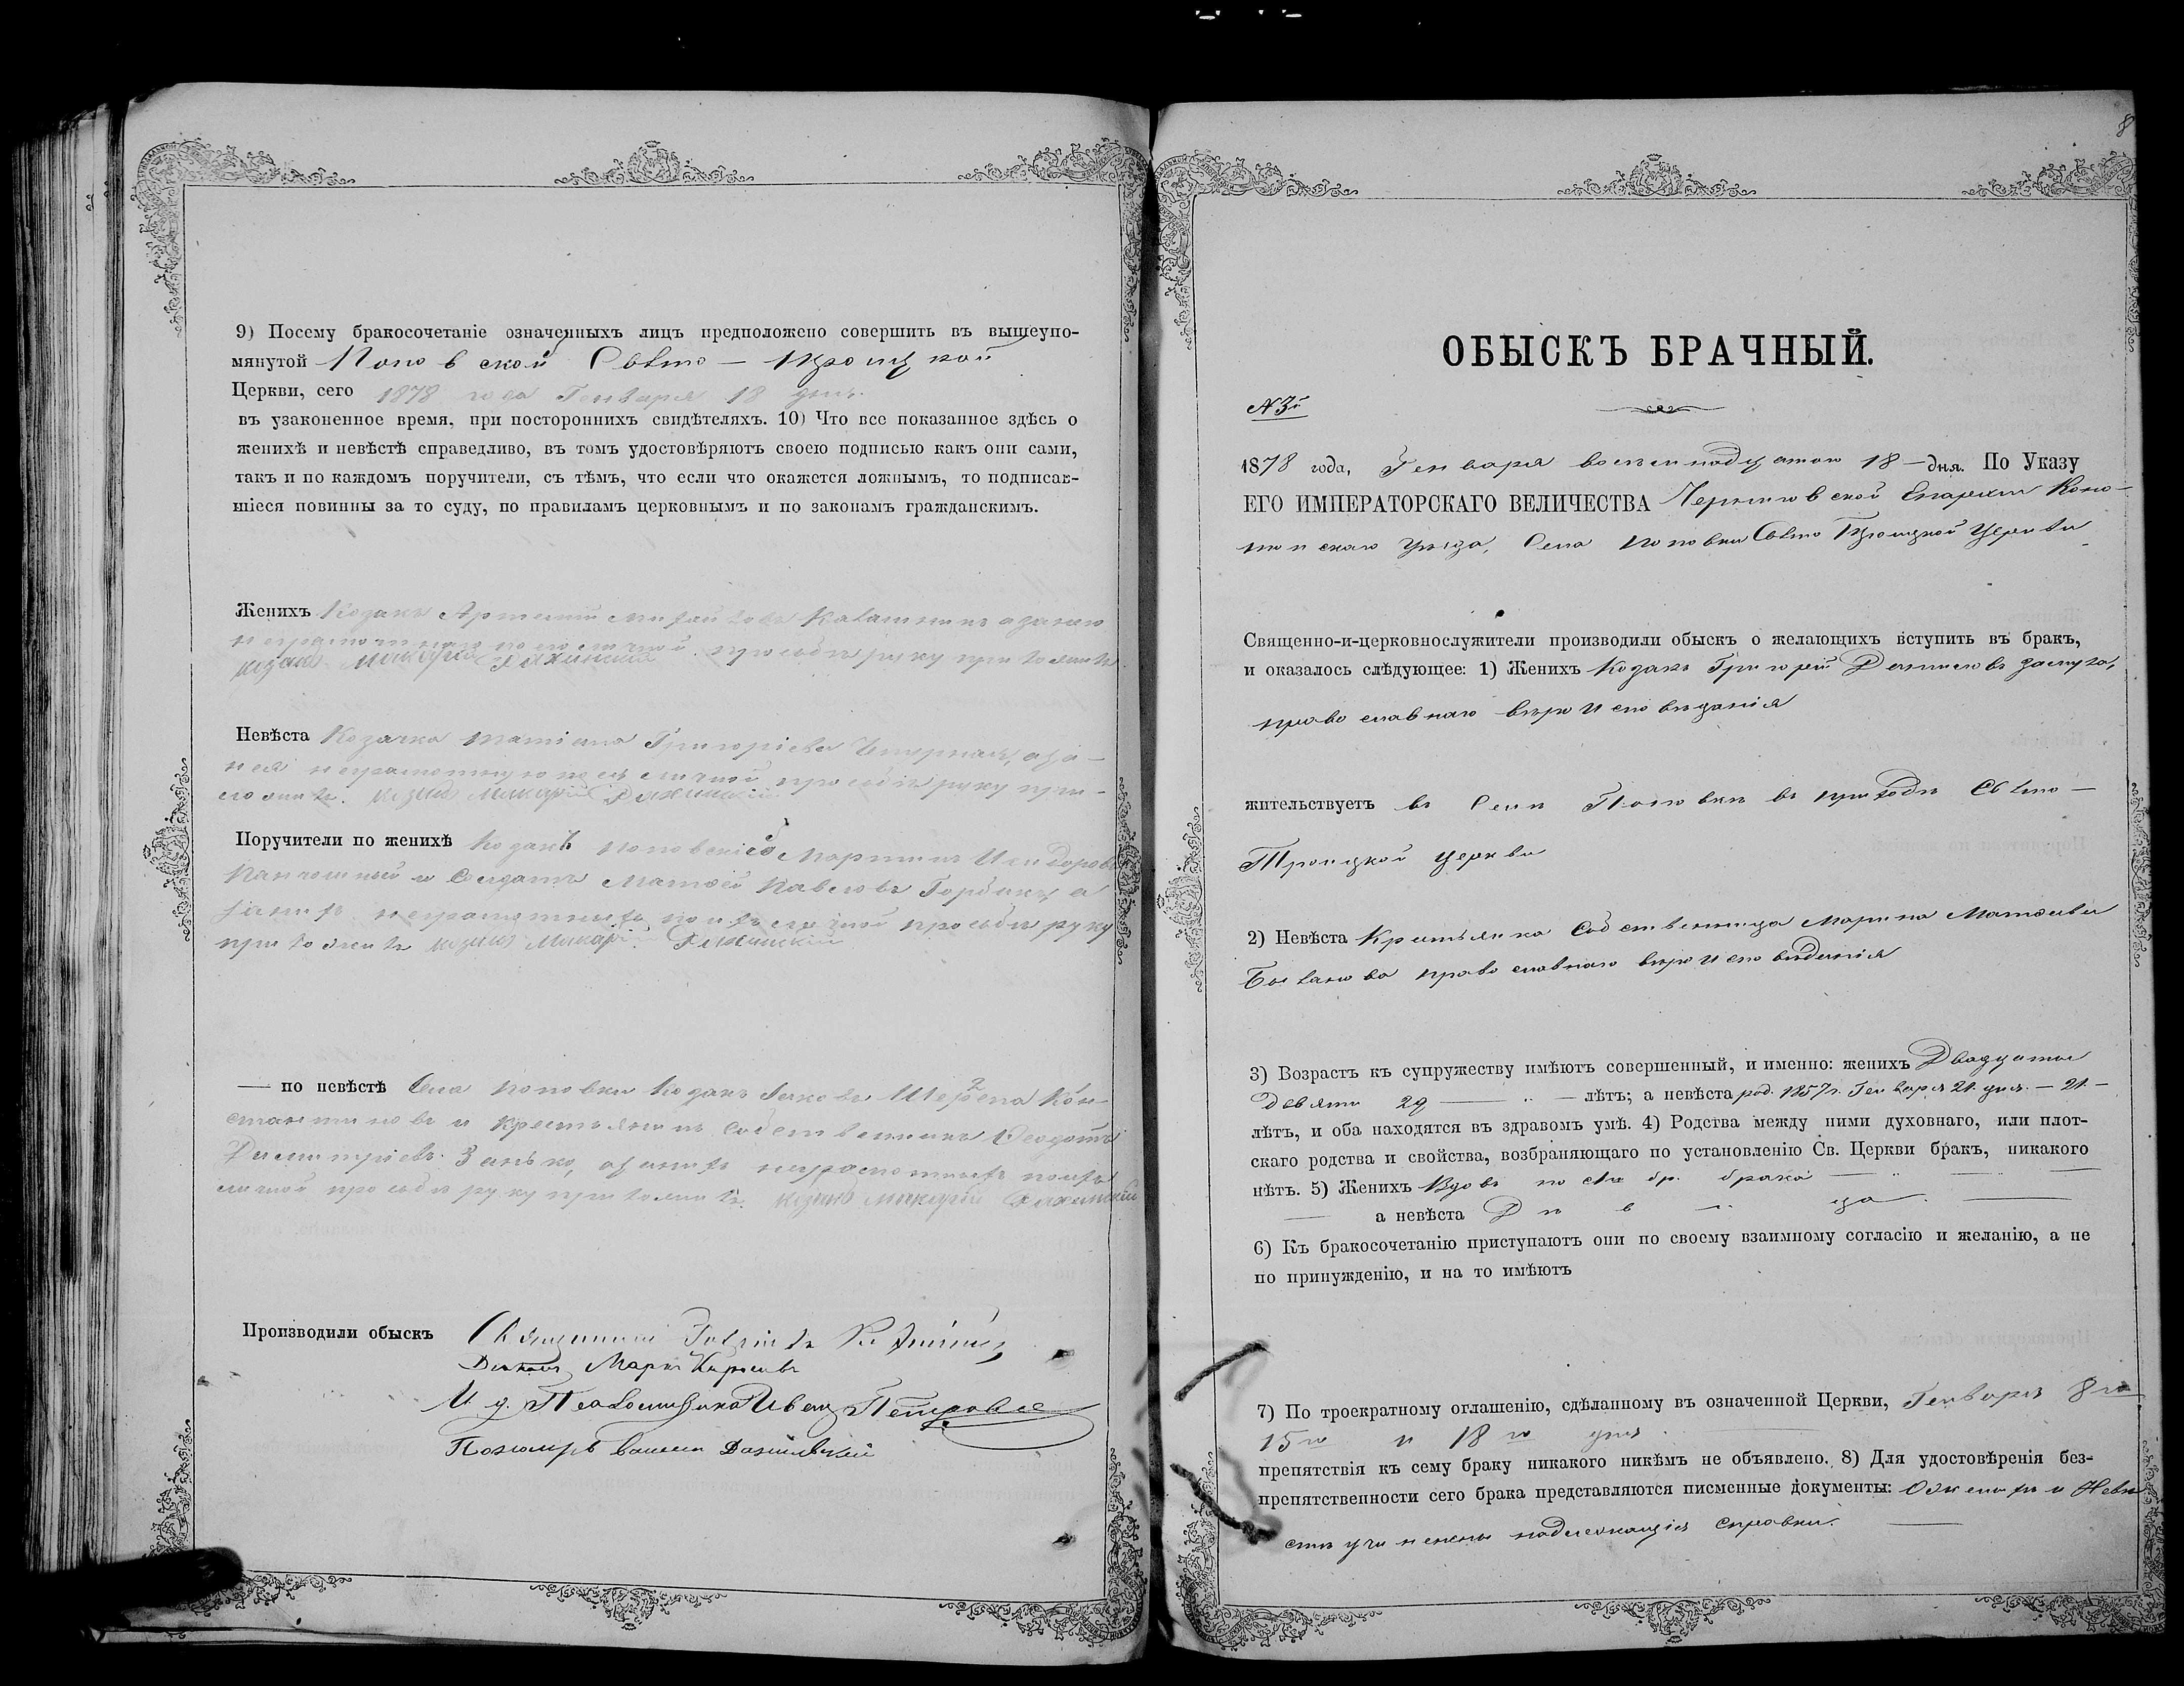 9) Посему бракосочетаніе означенныхъ лицъ предположено совершить въ вышеупо-
мянутой Поповской Свято-Троицкой
Церкви, сего 1878 года Генваря 18 дня.
въ узаконенное время, при постороннихъ свидѣтеляхъ. 10) Что все показанное здѣсь о
женихѣ и невѣстѣ справедливо, въ томъ удостовѣряютъ своею подписью какъ они сами,
такъ и по каждомъ поручители, съ тѣмъ, что если что окажется ложнымъ, то подписав-
шіеся повинны за то суду, по правиламъ церковнымъ и по законамъ гражданскимъ.
Женихъ Козакъ а за него
неграмотнаго по его личной просьбѣ руку приложилъ
козакъ Макарій
Невѣста Козачка Татіана Григоріева а за
нея неграмотную по ея личной просьбѣ руку при-
ложилъ козакъ Макарій
Поручители по женихѣ Козакъ Поповскій Мартинъ Исидоровъ
и Солдатъ Матѳей Павловъ а
за нихъ неграмотныхъ по ихъ личной просьбѣ руку
приложилъ козакъ Макарій
— по невѣстѣ Села Поповки Козакъ
и крестьянинъ собственникъ Ѳеодотъ
Димитріевъ а за нихъ неграмотныхъ по ихъ
личной просьбѣ руку приложилъ козакъ Макарій
Производили обыскъ Священникъ
Марко
И. д. Псаломщика Иванъ Петровъ
8
ОБЫСКЪ БРАЧНЫЙ.
№ 3й
1878 года, Генваря восемнадцатого 18 - дня. По Указу
ЕГО ИМПЕРАТОРСКАГО ВЕЛИЧЕСТВА Черниговской Епархіи Коно-
топскаго уѣзда, Села Поповки Свято Троицкой Церкви
Священно-и-церковнослужители производили обыскъ о желающихъ вступить въ бракъ,
и оказалось слѣдующее: 1) Женихъ Козакъ Григорій
православнаго вѣроисповѣданія
жительствуетъ въ Селѣ Поповкѣ въ приходѣ Свято-
Троицкой церкви
2) Невѣста Крестьянка Собственница Марина Матѳеева
православнаго вѣроисповѣданія
3) Возрастъ къ супружеству имѣютъ совершенный, и именно: женихъ Двадцать
девять 29 — лѣтъ; а невѣста род. 1857 г. Генваря 21 дня. — 21 —
лѣтъ, и оба находятся въ здравомъ умѣ. 4) Родства между ними духовнаго, или плот-
скаго родства и свойства, возбраняющаго по установленію Св. Церкви бракъ, никакого
нѣтъ. 5) Женихъ Вдовъ по брака
а невѣста Дѣвица
6) Къ бракосочетанію приступаютъ они по своему взаимному согласію и желанію, а не
по принужденію, и на то имѣютъ
7) По троекратному оглашенію, сдѣланному въ означенной Церкви, Генваря 8го
15го и 18го дня
препятствія къ сему браку никакого никѣмъ не объявлено. 8) Для удостовѣренія без-
препятственности сего брака представляются писменные документы: О женихѣ и Невѣ-
стѣ учинены надлежащія справки.